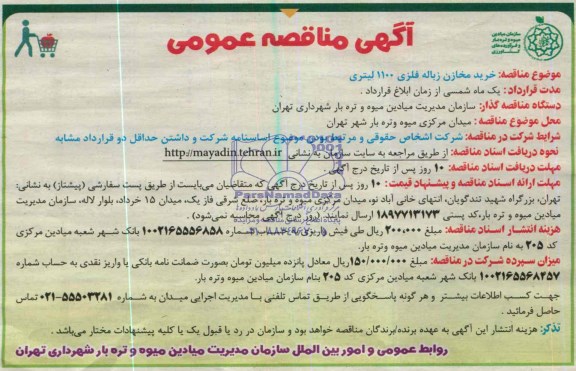 سازمان میادین
میوه و تره بار
و فرآورده های
کشاورزی
آگهی مناقصه عمومی
موضوع مناقصه: خرید مخازن زباله فلزی ۱۱۰۰ لیتری
مدت قرارداد: یک ماه شمسی از زمان ابلاغ قرارداد .
دستگاه مناقصه گذار: سازمان مدیریت میادین میوه و تره بار شهرداری تهران
محل موضوع مناقصه: میدان مرکزی میوه وتره بار شهر تهران
شرایط شرکت در مناقصه: شرکت اشخاص حقوقی و مرتبط بودن موضوع اساسنامه شرکت و داشتن حداقل دو قرارداد مشابه
نحوه دریافت اسناد مناقصه: از طریق مراجعه به سایت سازمان به نشانی http://mayadin.tehran.ir
مهلت دریافت اسناد مناقصه: ۱۰ روز پس از تاریخ درج آگهی .
مهلت ارائه اسناد مناقصه و پیشنهاد قیمت: ۱۰ روز پس از تاریخ درج آگهی که متقاضیان می‌بایست از طریق پست سفارشی (پیشتاز) به نشانی:
تهران، بزرگراه شهید تندگویان، انتهای خانی آباد نو، میدان مرکزی میوه و تره بار، ضلع شرقی فاز یک، میدان ۱۵ خرداد، بلوار لاله، سازمان مدیریت
میادین میوه و تره بار،کد پستی ۱۸۹۷۷۱۳۱۷۳ ارسال نمایند. (روز درج آگهی محاسبه نمی‌شود) .
هزینه انتشار اسناد مناقصه: مبلغ ۲۰۰/۰۰۰ ریال طی فیش واریزی به حساب شماره ۱۰۰۲۱۶۵۵۵۶۸۵۸ بانک شهر شعبه میادین مرکزی
کد ۲۰۵ به نام سازمان مدیریت میادین میوه وتره بار.
میزان سپرده شرکت در مناقصه: مبلغ ۱۵۰/۰۰۰/۰۰۰ ریال معادل پانزده میلیون تومان بصورت ضمانت نامه بانکی یا واریز نقدی به حساب شماره
۱۰۰۲۱۶۵۵۶۸۲۵۷ بانک شهر شعبه میادین مرکزی کد ۲۰۵ بنام سازمان مدیریت میادین میوه وتره بار.
جهت کسب اطلاعات بیشتر و هر گونه پاسخگویی از طریق تماس تلفنی با مدیریت اجرایی میدان به شماره ۵۵۵۰۳۲۸۱-۰۲۱ تماس
حاصل فرمائید .
تذکر: هزینه انتشار این آگهی به عهده برنده/برندگان مناقصه خواهد بود و سازمان در رد یا قبول یک یا کلیه پیشنهادات مختار می‌باشد .
روابط عمومی و امور بین الملل سازمان مدیریت میادین میوه و تره بار شهرداری تهران
ParsNamadData